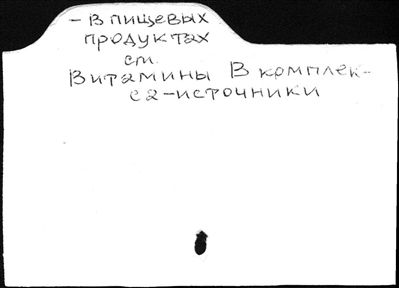 - В пищевых
продуктах
см.
Витамины В комплек-
са-источники